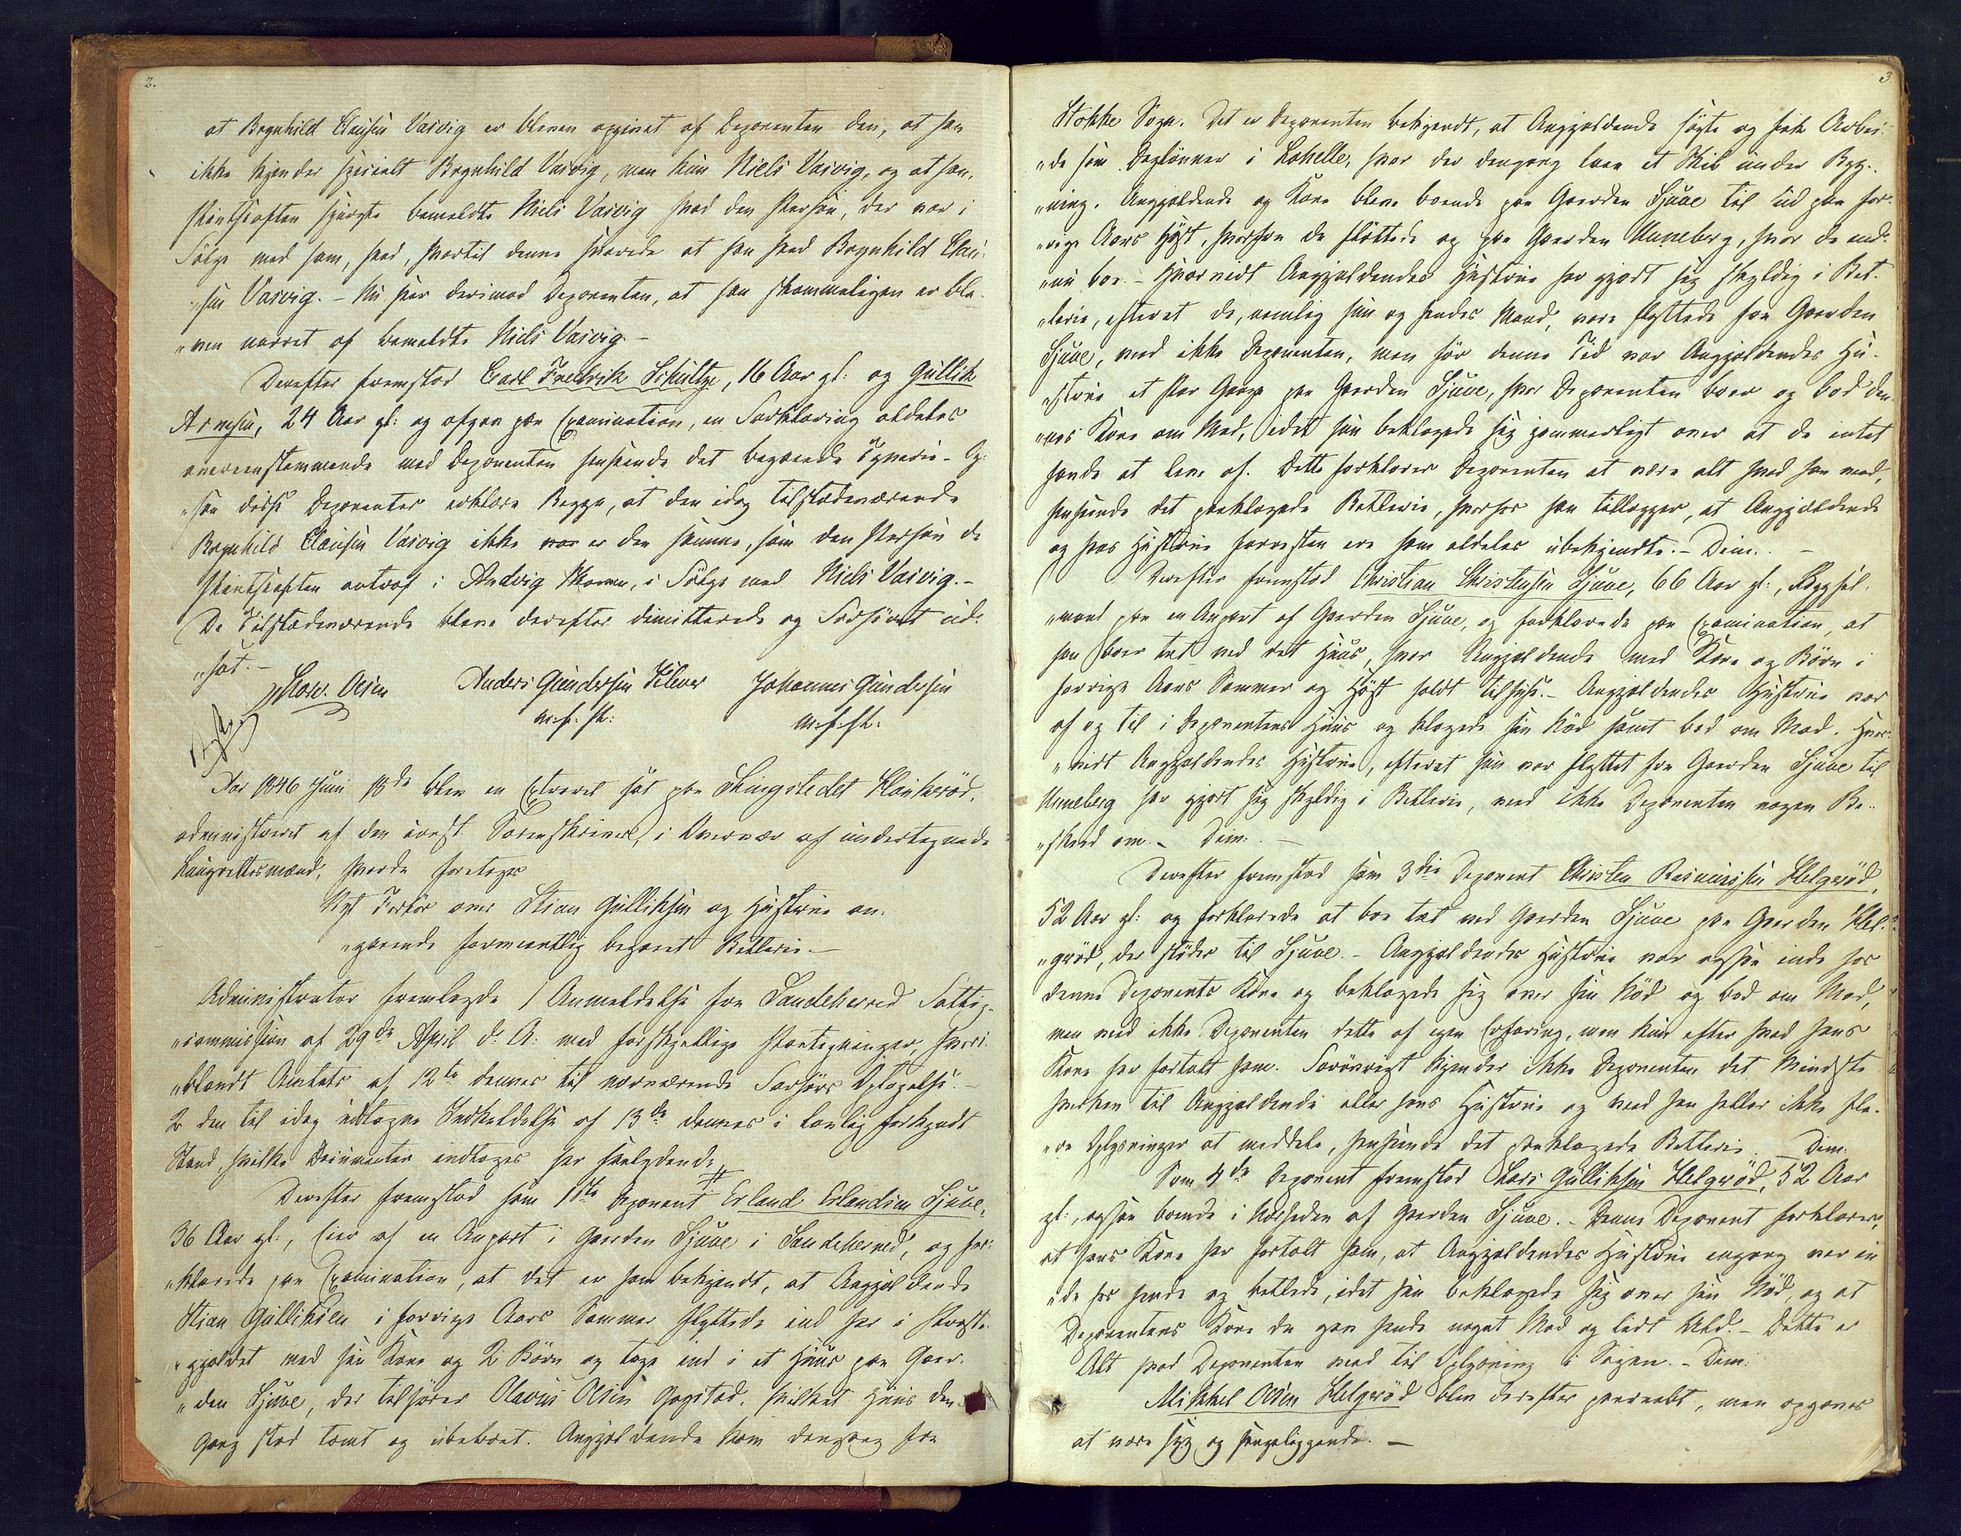 2.
at Bergnhild Clausen Vasvig er bleven opgivet af Deponenten den, at han
ikke kjender specielt Bergnhild Vasvig, men kun Niels Vasvig, og at han,
spurgte bemeldte Niels Vasvig hvad den Person, der var i
Følge med ham, hed, hvortil denne svarede at han hed Bergnhild Clau-
„sen Vasvig. – Nu seer derimod Deponenten, at han skammeligen er ble-
„ven narret af bemeldte Niels Vasvig –
Derefter fremstod Carl Fredrik Schultze, 16 Aar gl: og Gullik
Arnesen, 24 Aar gl: og afgav paa Examination, en Forklaring aldeles
overeensstemmende med Deponenten henseende det begaaede Tyverie – Og-
„saa disse Deponenter erklære Begge, at den idag tilstædeværende
Bergnhild Clausen Vasvig ikke var er den samme, som den Person de
antraf i Andvig Skoven, i Følge med Niels Vasvig. –
De Tilstædeværende bleve derefter dimitterede og Forhøret ud-
„sat. –
Olsen Anders Gundersen Klever Johannes Gundersen
m. f. P. m. f. P.
Aar 1846 Juni 18de blev en Extraret sat paa Thingstedet Haukerød,
administreret af den const. Sorenskriver, i Overvær af undertegnede
Laugrettesmænd, hvorda foretoges
Nyt Forhør over Stian Gulliksen og Hustrue an-
„gaaende formeentlig begaaet Betlerie. –
Administrator fremlagde 1 Anmeldelse fra Sandeherred Fattig-
„commission af 29de April d. A. med forskjellige Paategninger, hvori-
„blandt Amtets af 12te dennes til nærværende Forhørs Optagelse. –
2 den til idag udtagne Indkaldelse af 13de dennes i lovlig forkyndt
Stand, hvilke Documenter indtages her saalydende
#
Derefter fremstod som 1ste Deponent Erland Erlandsen Sjuve,
36 Aar gl:, Eier af en Anpart i Gaarden Sjuve i Sandeherred, og for-
„klarede paa Examination, at det er ham bekjendt, at Angjældende
Stian Gulliksen i forrige Aars Sommer flyttede ind her i Præste-
„gjældet med sin Kone og 2 Børn og toge ind i et Huus paa Gaar-
„den Sjuve, der tilhører Olavus Olsen Gogstad, hvilket Huus den-
gang stod tomt og ubeboet. Angjældende kom dengang fra
3
Stokke Sogn. Det er Deponenten bekjendt, at Angjældende søgte og fik Arbei-
„de som Daglønner i Lahelle, hvor der dengang laae et Skib under Byg-
„ning. Angjældende og Kone bleve boende paa Gaarden Sjuve til ud paa for-
„rige Aars Høst, hvorfra de flyttede op paa Gaarden Unneberg, hvor de end-
„nu boe. – Hvorvidt Angjældendes Hustrue har gjort sig skyldig i Bet-
„lerie, efterat de, nemlig hun og hendes Mand, vare flyttede fra Gaarden
Sjuve, veed ikke Deponenten, men før denne Tid var Angjældendes Hu-
„strue et Par Gange paa Gaarden Sjuve, hvor Deponenten boer og bad den-
„nes Kone om Mad, idet hun beklagede sig jammerligt over at de intet
havde at leve af. Dette forklarer Deponenten at være alt hvad han veed,
henseende det paaklagede Betlerie, hvorhos han tillægger, at Angjældende
og hans Hustrue forresten ere ham aldeles ubekjendte. – Dim. –
Derefter fremstod Christian Christensen Sjuve, 66 Aar gl:, Bygsel-
„mand paa en Anpart af Gaarden Sjuve, og forklarede paa Examination, at
han boer tæt ved det Huus, hvor Angjældende med Kone og Børn i
forrige Aars Sommer og Høst holdt tilhuse. – Angjældendes Hustrue var
af og til i Deponentens Huus og klagede sin Nød samt bad om Mad. Hvor-
„vidt Angjældendes Hustrue, efterat hun var flyttet fra Gaarden Sjuve til
Unneberg har gjort sig skyldig i Betlerie, veed ikke Deponenten nogen Be-
„skeed om. – Dim: –
Derefter fremstod som 3die Deponent Christen Rasmussen Helgerød,
52 Aar gl: og forklarede at boe tæt ved Gaarden Sjuve paa Gaarden Hel-
„gerød, der støder til Sjuve. – Angjældendes Hustrue var ogsaa inde hos
denne Deponents Kone og beklagede sig over sin Nød og bad om Mad,
men veed ikke Deponenten dette af egen Erfaring, men kun efter hvad hans
Kone har fortalt ham. Forøvrigt kjender ikke Deponenten det Mindste
hverken til Angjældende eller hans Hustrue og veed han heller ikke fle-
„re Oplysninger at meddele, henseende det paaklagede Betleri. – Dim:
Som 4de Deponent fremstod Lars Gulliksen Helgerød, 52 Aar
gl:, ogsaa boende i Nærheden af Gaarden Sjuve. – Denne Deponent forklarer,
at hans Kone har fortalt ham, at Angjældendes Hustrue engang var in-
„de hos hende og betlede, idet hun beklagede sig over sin Nød, og at
Deponentens Kone da gav hende noget Mad og lidt Uld. – Dette er
Alt hvad Deponenten veed til Oplysning i Sagen. – Dim:
Mikkel Olsen Helgerød blev derefter paaraabt, men opgaves
at være syg og sengeliggende. –